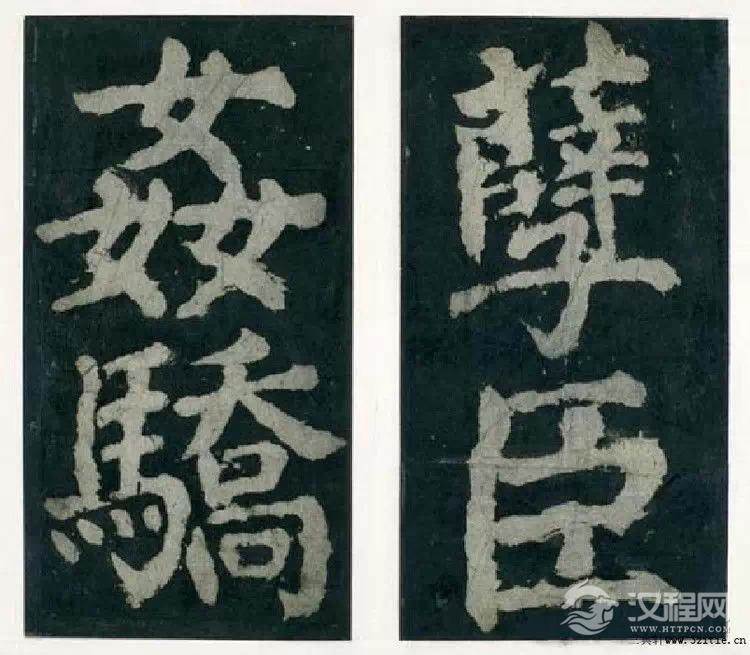 孼臣
姦驕
汉程网
WWW.HTTPCN.COM
www.321tie.cn